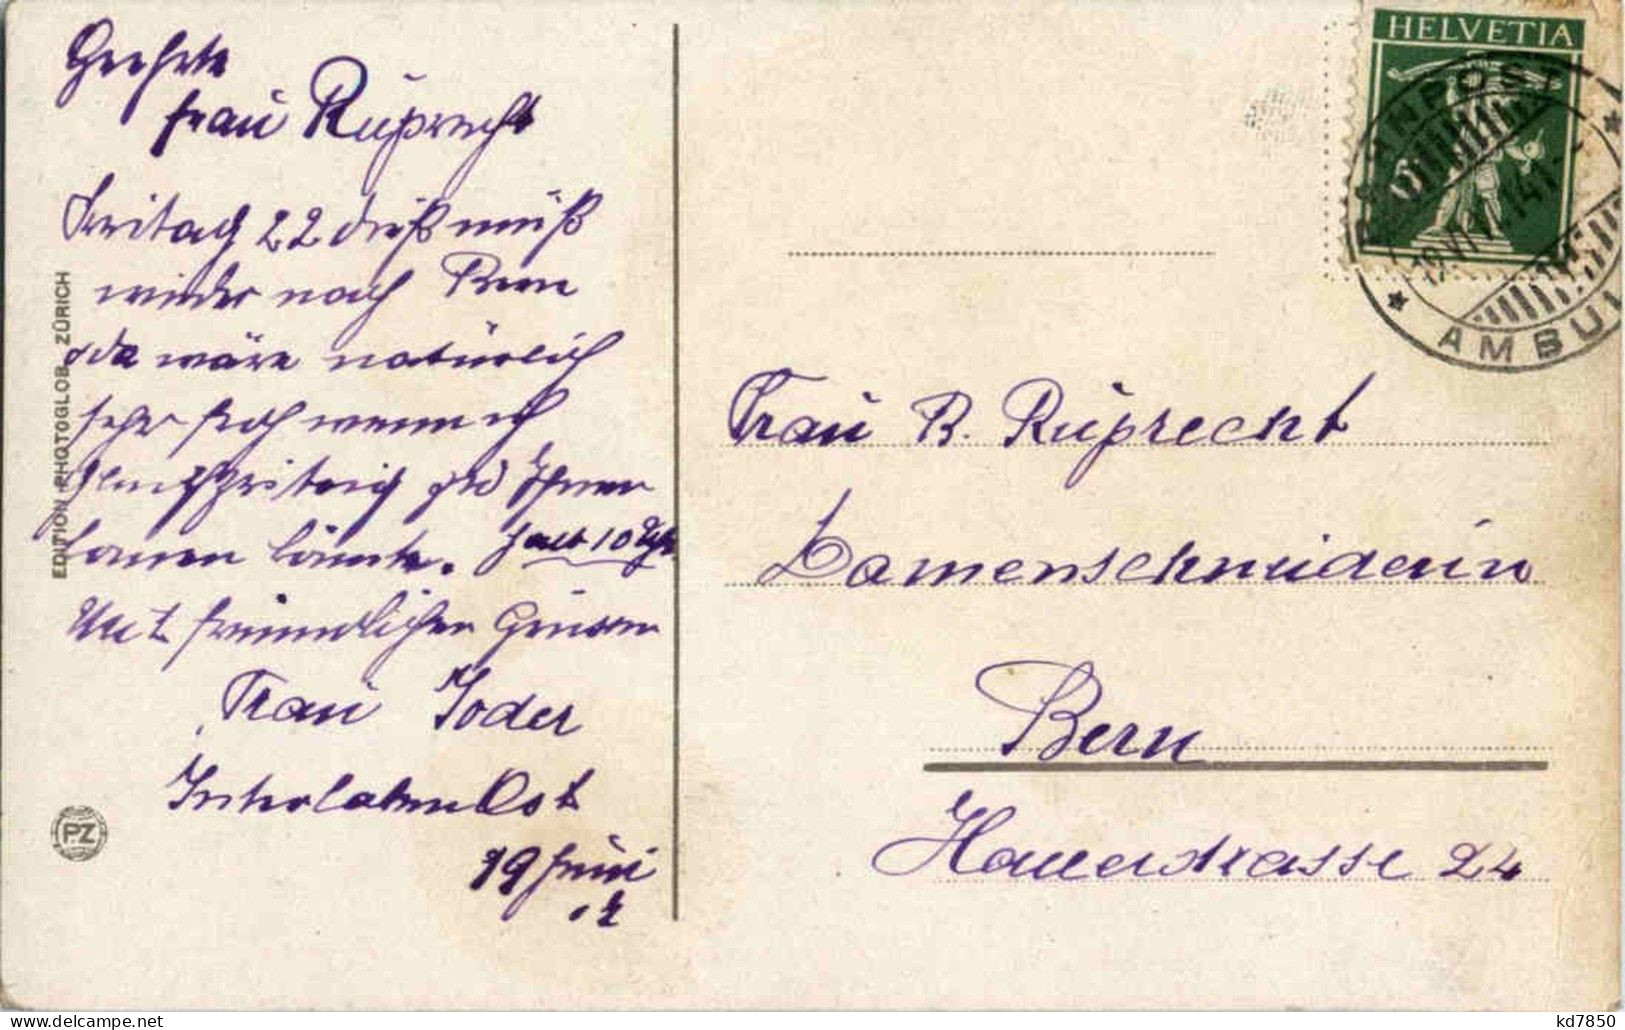 Geehrte
Frau Ruprecht
Freitag 22 dieß muß
wieder nach Bern
& da wäre natürlich
sehr froh wenn ich
gleichzeitig zu Ihnen
komen könnte. halb 10 Uhr
Mit freundlichen Grüssen
Frau Joder
Interlaken Ost
19 Juni
EDITION PHOTOGLOB ZÜRICH
PZ
HELVETIA
BAHNPOST
AMBUL
Frau R. Ruprecht
Damenschneiderin
Bern
Hallerstrasse 24
kd7850